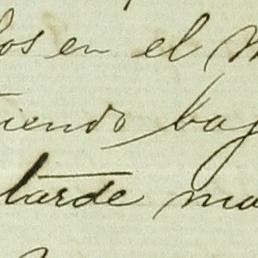 los en el
iendo baj
tarde ma